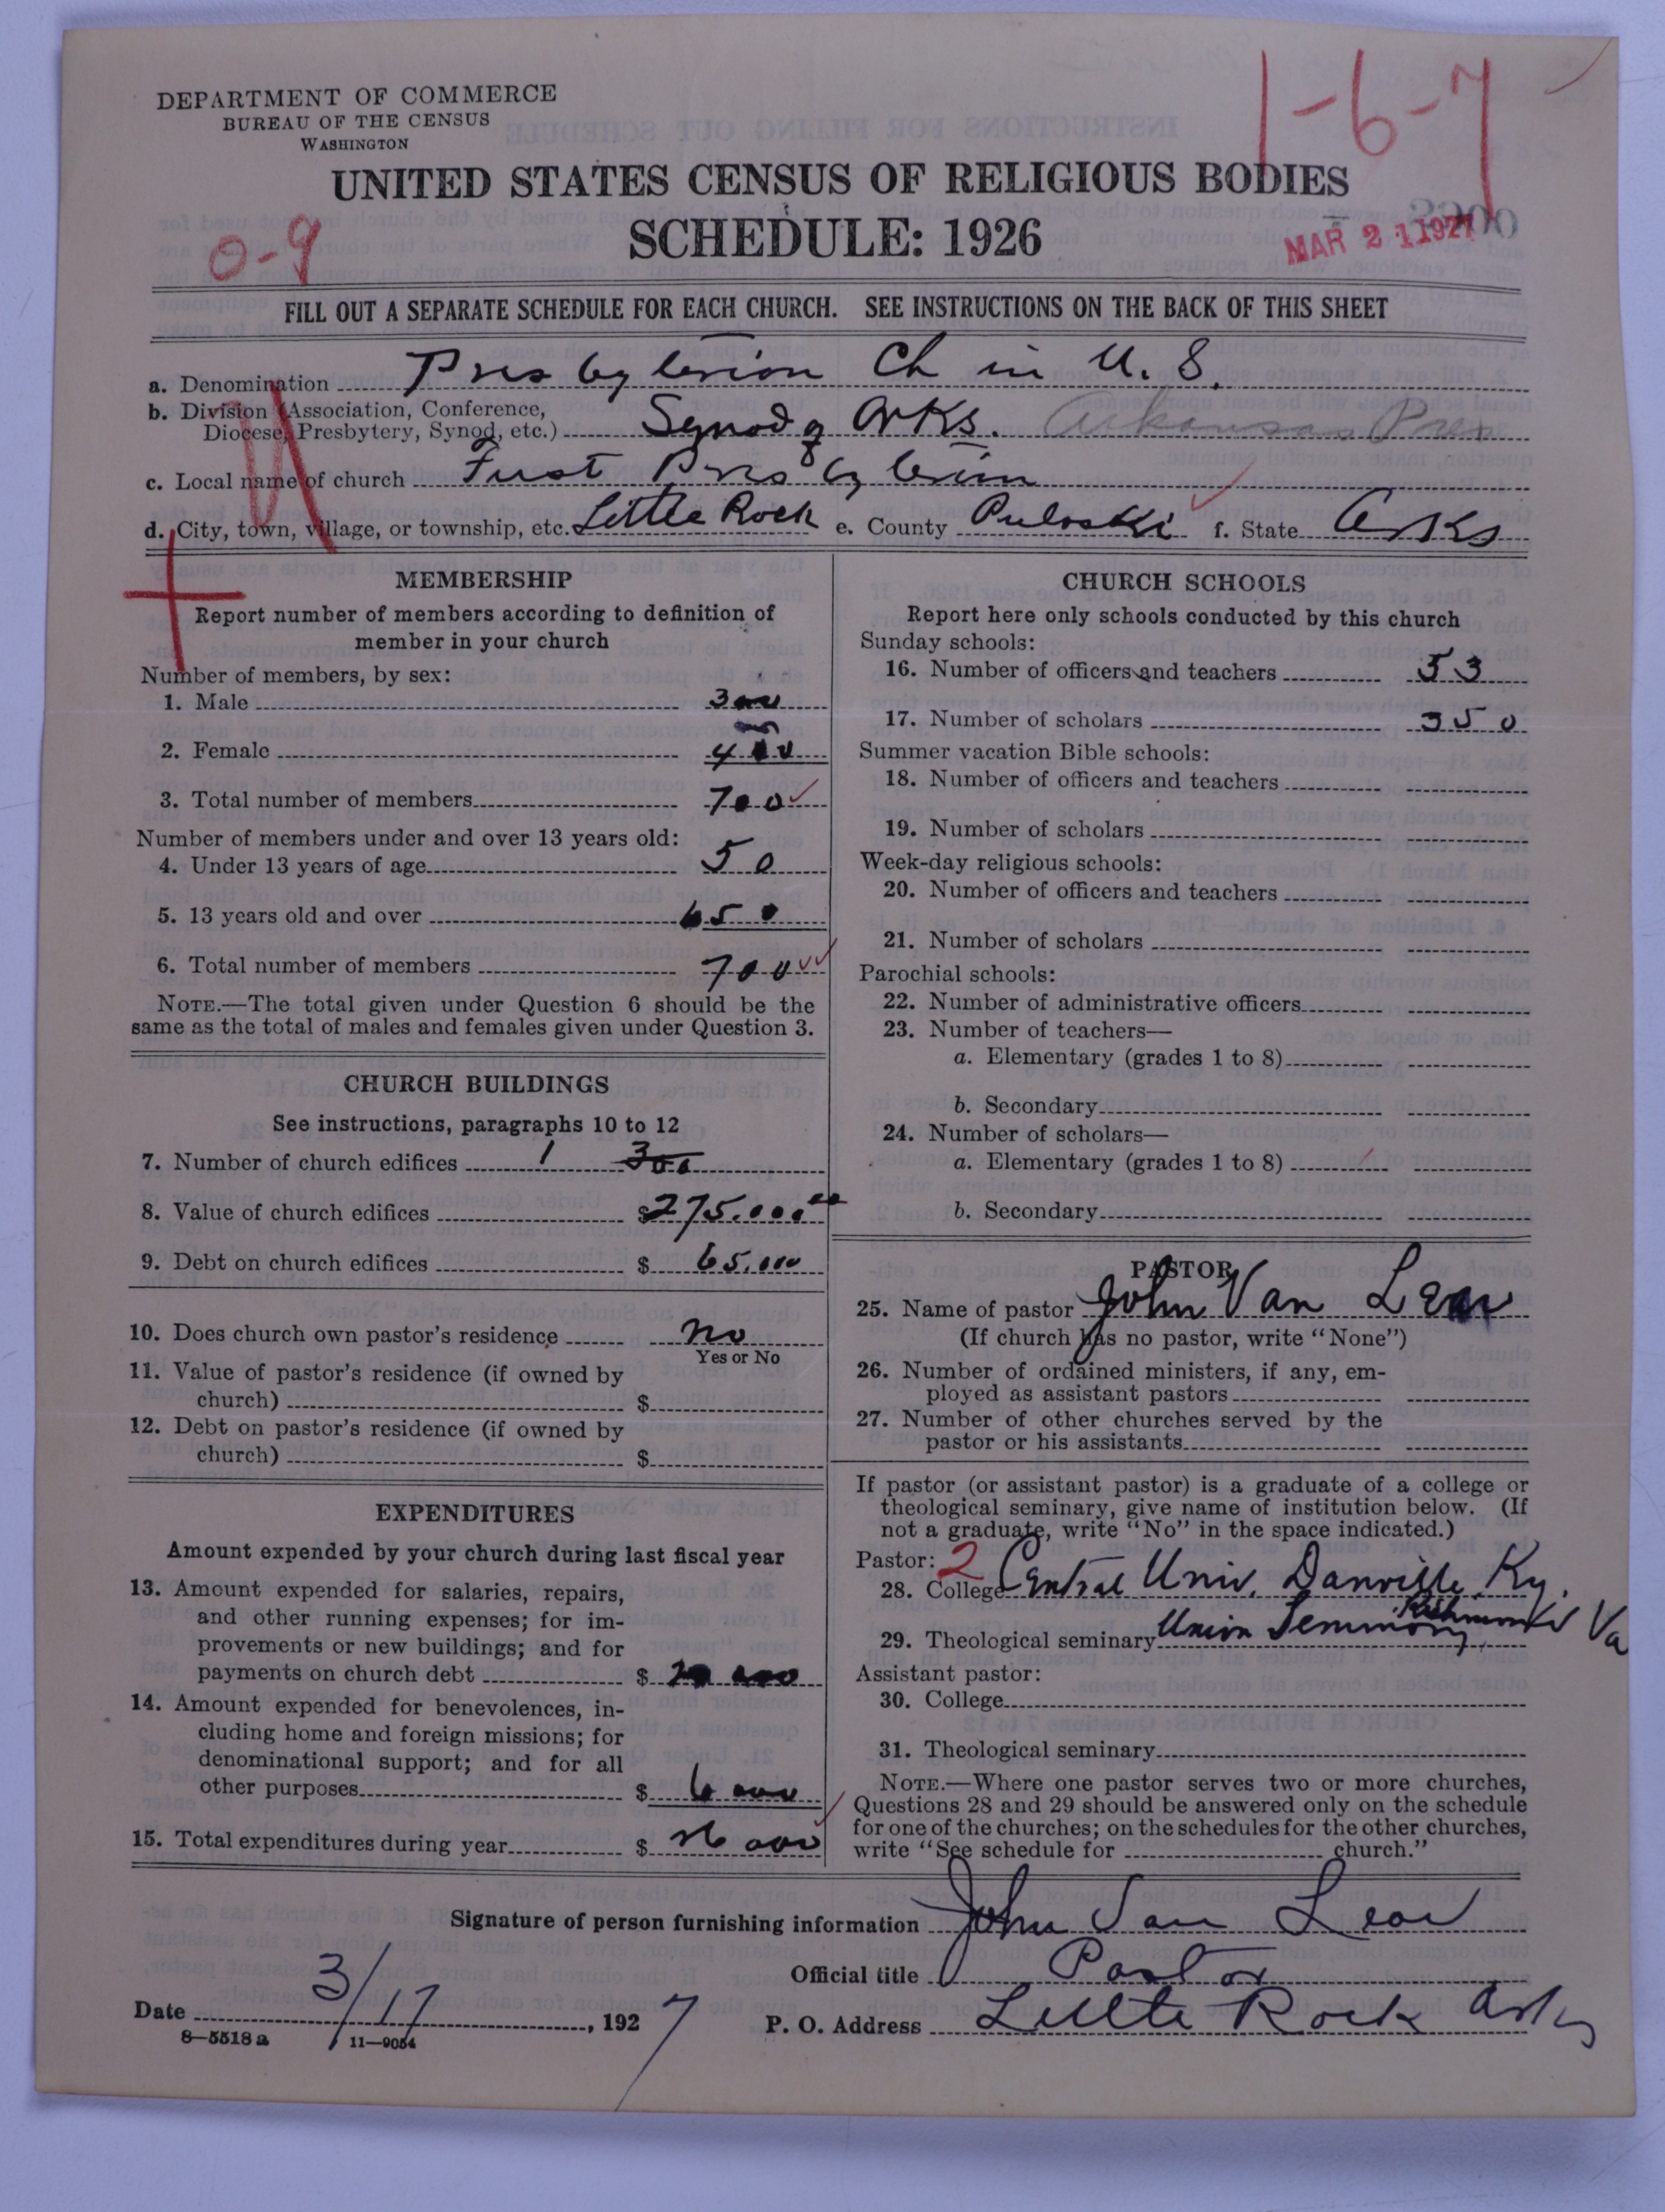 1-6-7
DEPARTMENT OF COMMERCE
BUREAU OF THE CENSUS
WASHINGTON
UNITED STATES CENSUS OF RELIGIOUS BODIES
SCHEDULE: 1926
0-9
MAR 21 1927
FILL OUT A SEPARATE SCHEDULE FOR EACH CHURCH. SEE INSTRUCTIONS ON THE BACK OF THIS SHEET
a. Denomination Presbyterian Ch in U. S.
b. Division (Association, Conference,
Diocese, Presbytery, Synod, etc.) Synod of Arks. Arkansas Pres
c. Local name of church First Presbyterian
d. City, town, village, or township, etc. Little Rock e. County Pulaski f. State Arks
MEMBERSHIP
Report number of members according to definition of
member in your church
Number of members, by sex:
1. Male 300
2. Female 400
3. Total number of members 700
Number of members under and over 13 years old:
4. Under 13 years of age 50
5. 13 years old and over 650
6. Total number of members 700
NOTE.—The total given under Question 6 should be the
same as the total of males and females given under Question 3.
CHURCH BUILDINGS
See instructions, paragraphs 10 to 12
7. Number of church edifices 1 300
8. Value of church edifices $275.000.00
9. Debt on church edifices $ 65.000
10. Does church own pastor's residence no
Yes or No
11. Value of pastor's residence (if owned by
church) $
12. Debt on pastor's residence (if owned by
church) $
EXPENDITURES
Amount expended by your church during last fiscal year
13. Amount expended for salaries, repairs,
and other running expenses; for im-
provements or new buildings; and for
payments on church debt $ 20 000
14. Amount expended for benevolences, in-
cluding home and foreign missions; for
denominational support; and for all
other purposes $ 6 000
15. Total expenditures during year $ 26 000
CHURCH SCHOOLS
Report here only schools conducted by this church
Sunday schools:
16. Number of officers and teachers 53
17. Number of scholars 350
Summer vacation Bible schools:
18. Number of officers and teachers
19. Number of scholars
Week-day religious schools:
20. Number of officers and teachers
21. Number of scholars
Parochial schools:
22. Number of administrative officers
23. Number of teachers—
a. Elementary (grades 1 to 8)
b. Secondary
24. Number of scholars—
a. Elementary (grades 1 to 8)
b. Secondary
PASTOR
25. Name of pastor John Van Lear
(If church has no pastor, write "None")
26. Number of ordained ministers, if any, em-
ployed as assistant pastors
27. Number of other churches served by the
pastor or his assistants
If pastor (or assistant pastor) is a graduate of a college or
theological seminary, give name of institution below. (If
not a graduate, write "No" in the space indicated.)
Pastor: 2
28. College Central Univ. Danville Ky.
29. Theological seminary Union Seminary, Richmond Va
Assistant pastor:
30. College
31. Theological seminary
NOTE.—Where one pastor serves two or more churches,
Questions 28 and 29 should be answered only on the schedule
for one of the churches; on the schedules for the other churches,
write "See schedule for church."
Signature of person furnishing information John Van Lear
Official title Pastor
Date 3/17, 1927 P. O. Address Little Rock Arks
8—5518 a 11—9054